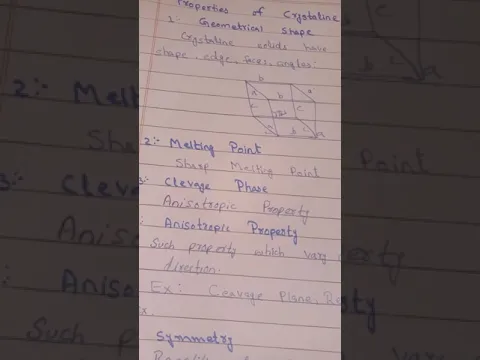 Properties of Crystaline
1:- Geometrical Shape
Crystaline solids have
shape, edge, faces, angles.
2:- Melting Point
Sharp Melting Point
3:- Clevage Phase
Anisotropic Property
: Anisotropic Property
Such property which vary
direction.
Ex: Cleavage Plane,
x.
Symmetry